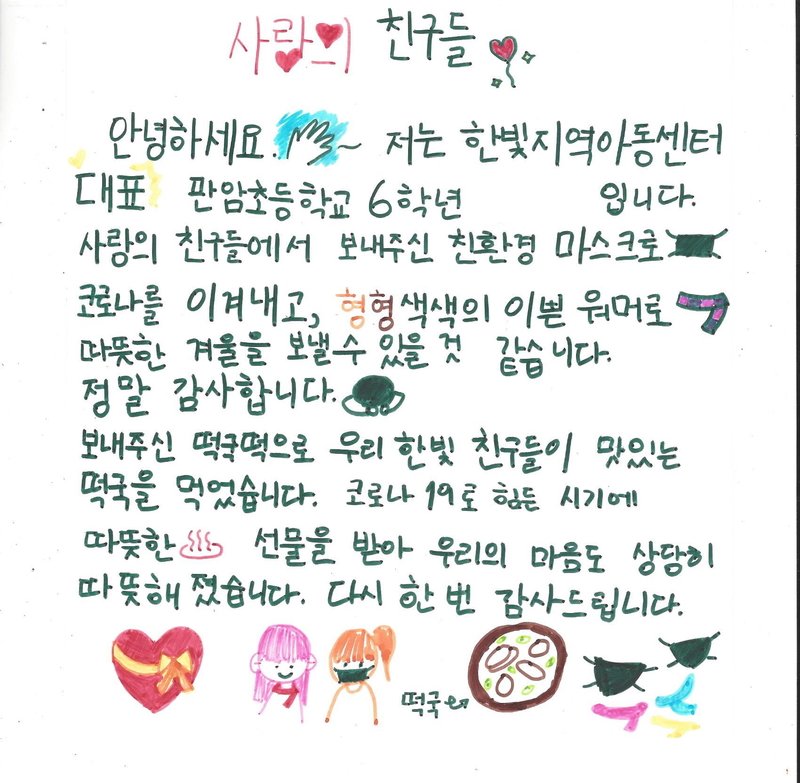 사랑의 친구들
안녕하세요.~ 저는 한빛지역아동센터
대표 판암초등학교 6학년 입니다.
사랑의 친구들에서 보내주신 친환경 마스크로
코로나를 이겨내고, 형형색색의 이쁜 워머로
따뜻한 겨울을 보낼 수 있을 것 같습니다.
정말 감사합니다.
보내주신 떡국떡으로 우리 한빛 친구들이 맛있는
떡국을 먹었습니다. 코로나 19로 힘든 시기에
따뜻한 선물을 받아 우리의 마음도 상당히
따뜻해졌습니다. 다시 한 번 감사드립니다.
떡국